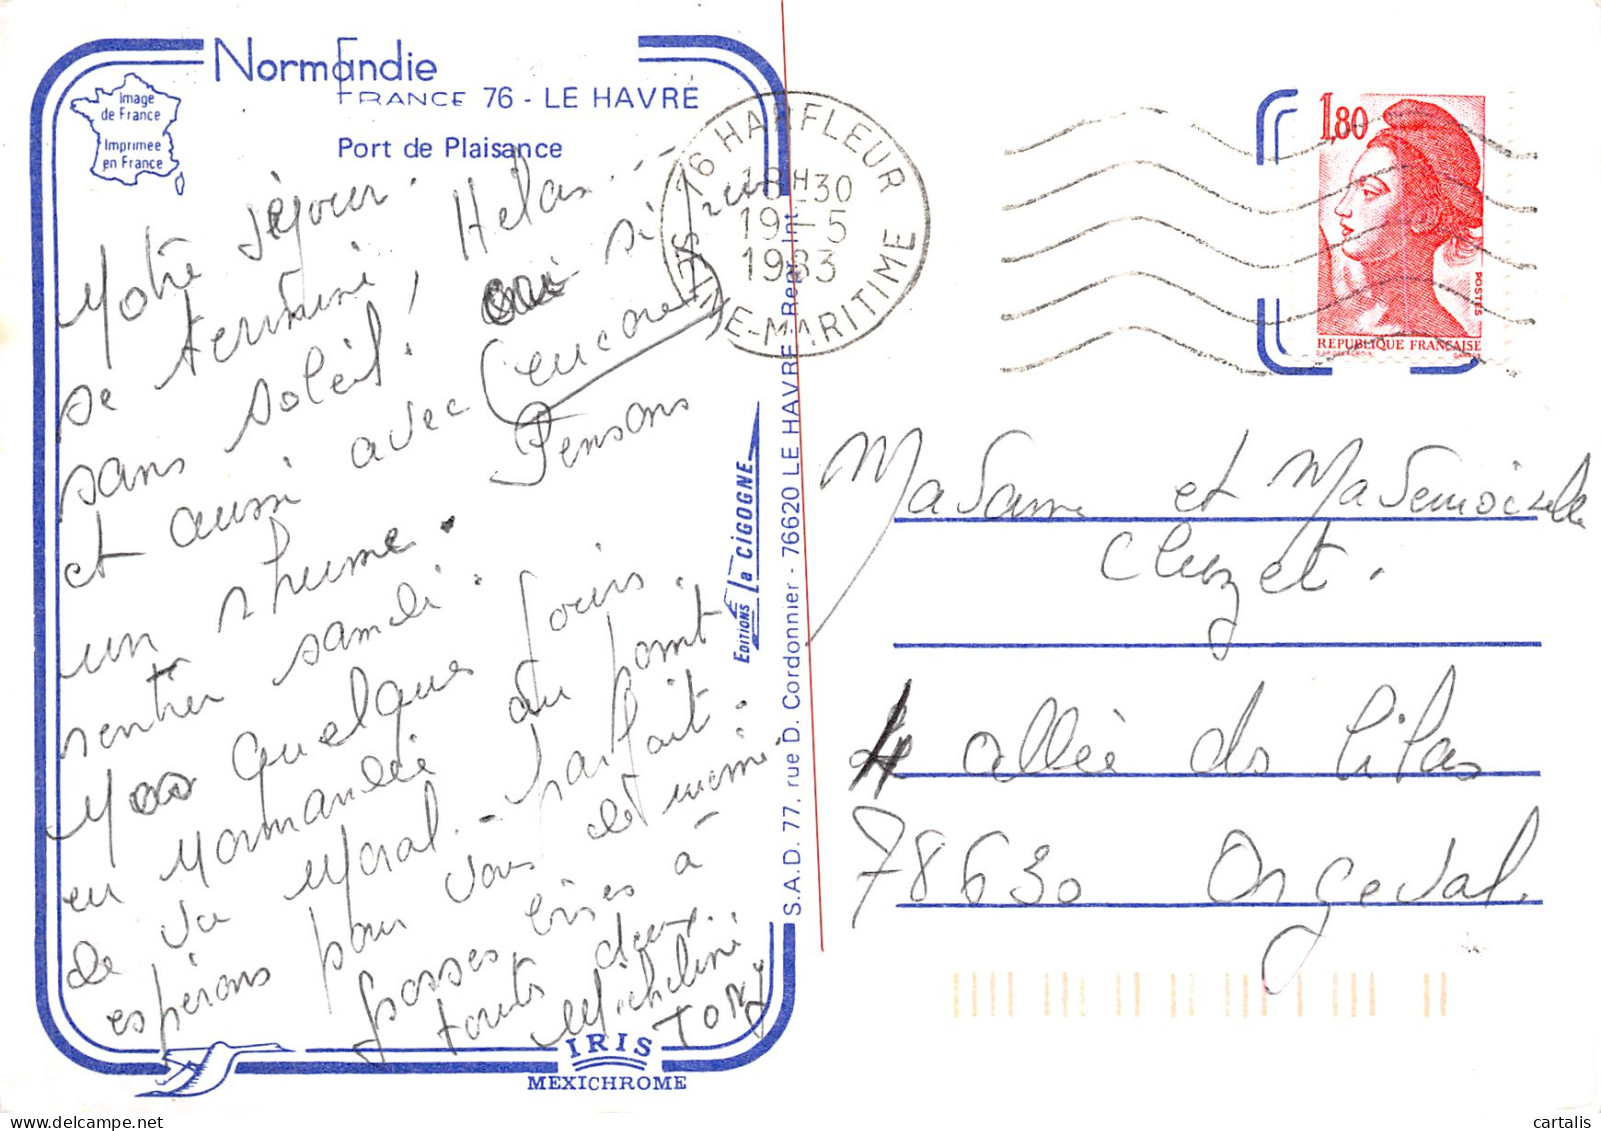 Normandie
FRANCE 76 - LE HAVRE
Port de Plaisance
Image
de France
Imprimée
en France
Notre séjour
se termine, Helas...
sans soleil, oui si si
et aussi avec (encore)
un rhume. Pensons
rentrer samedi.
Nos quelques jours
en Normandie du point
de vu moral - parfait.
espérons pour vous de même
grosses bises à
touts deux.
Micheline
TONY
IRIS
MEXICHROME
EDITIONS La CIGOGNE
S.A.D. 77, rue D. Cordonnier - 76620 LE HAVRE - Repr. Int.
76 HARFLEUR
18H30
19-5
1983
SEINE-MARITIME
1,80
POSTES
REPUBLIQUE FRANÇAISE
Madame et Mademoiselle
Cluzet.
4 allée ds lilas
78630 Orgeval.
cartalis